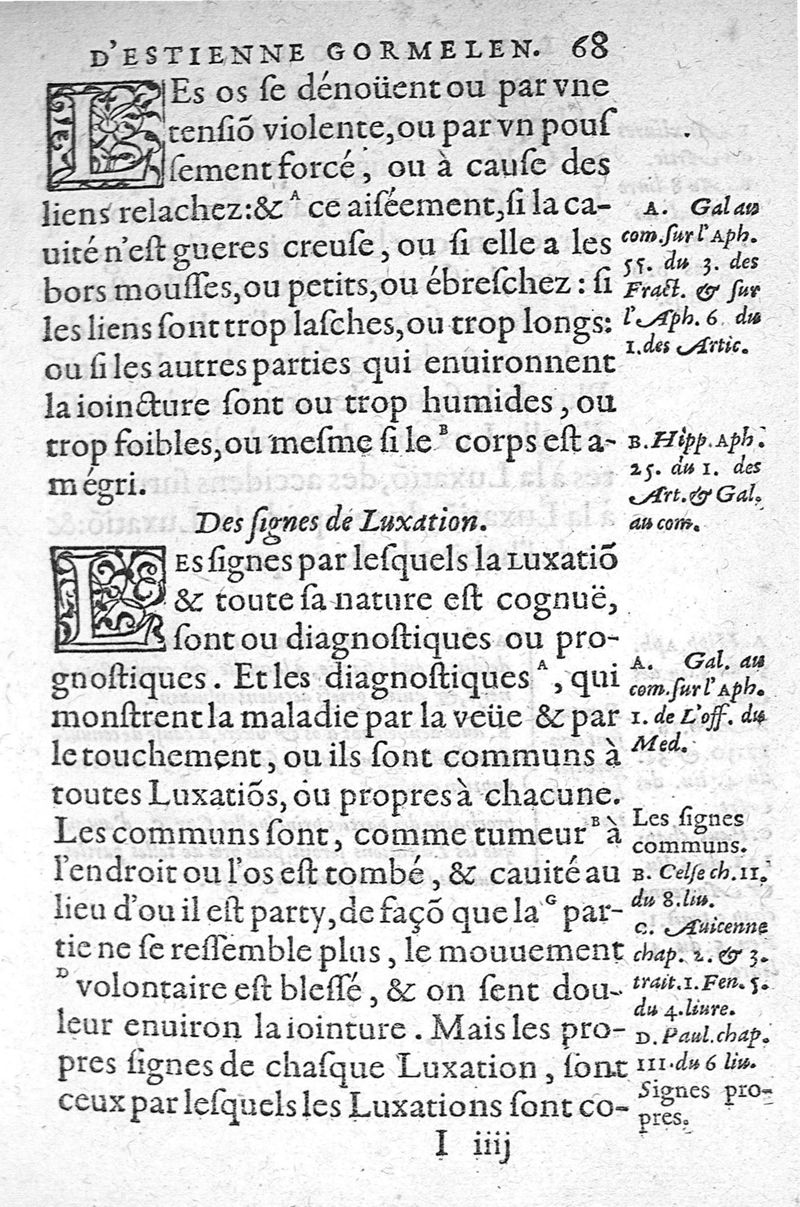 D'ESTIENNE GORMELEN. 68
LEs os ſe dénoüent ou par vne
tenſiō violente, ou par vn pouſ
ſement forcé, ou à cauſe des
liens relachez: & A ce aiſéement, ſi la ca-
uité n'eſt gueres creuſe, ou ſi elle a les
bors mouſſes, ou petits, ou ébreſchez: ſi
les liens ſont trop laſches, ou trop longs:
ou ſi les autres parties qui enuironnent
la ioincture ſont ou trop humides, ou
trop foibles, ou meſme ſi le B corps eſt a-
mégri.
A. Gal au
com. ſur l'Aph.
55. du 3. des
Fract. & ſur
l'Aph. 6. du
1. des Artic.
B. Hipp. Aph.
25. du 1. des
Art. & Gal.
au com.
Des ſignes de Luxation.
LEs ſignes par leſquels la Luxatiō
& toute ſa nature eſt cognuë,
ſont ou diagnoſtiques ou pro-
gnoſtiques. Et les diagnoſtiques A, qui
monſtrent la maladie par la veüe & par
le touchement, ou ils ſont communs à
toutes Luxatiōs, ou propres à chacune.
Les communs ſont, comme tumeur B à
l'endroit ou l'os eſt tombé, & cauité au
lieu d'ou il eſt party, de façō que la G par-
tie ne ſe reſſemble plus, le mouuement
D volontaire eſt bleſſé, & on ſent dou-
leur enuiron la iointure. Mais les pro-
pres ſignes de chaſque Luxation, ſont
ceux par leſquels les Luxations ſont co-
A. Gal. au
com. ſur l'Aph.
1. de L'off. du
Med.
Les ſignes
communs.
B. Celſe ch. 11.
du 8. liu.
C. Auicenne
chap. 2. & 3.
trait. 1. Fen. 5.
du 4. liure.
D. Paul. chap.
111. du 6 liu.
Signes pro-
pres.
I iiij